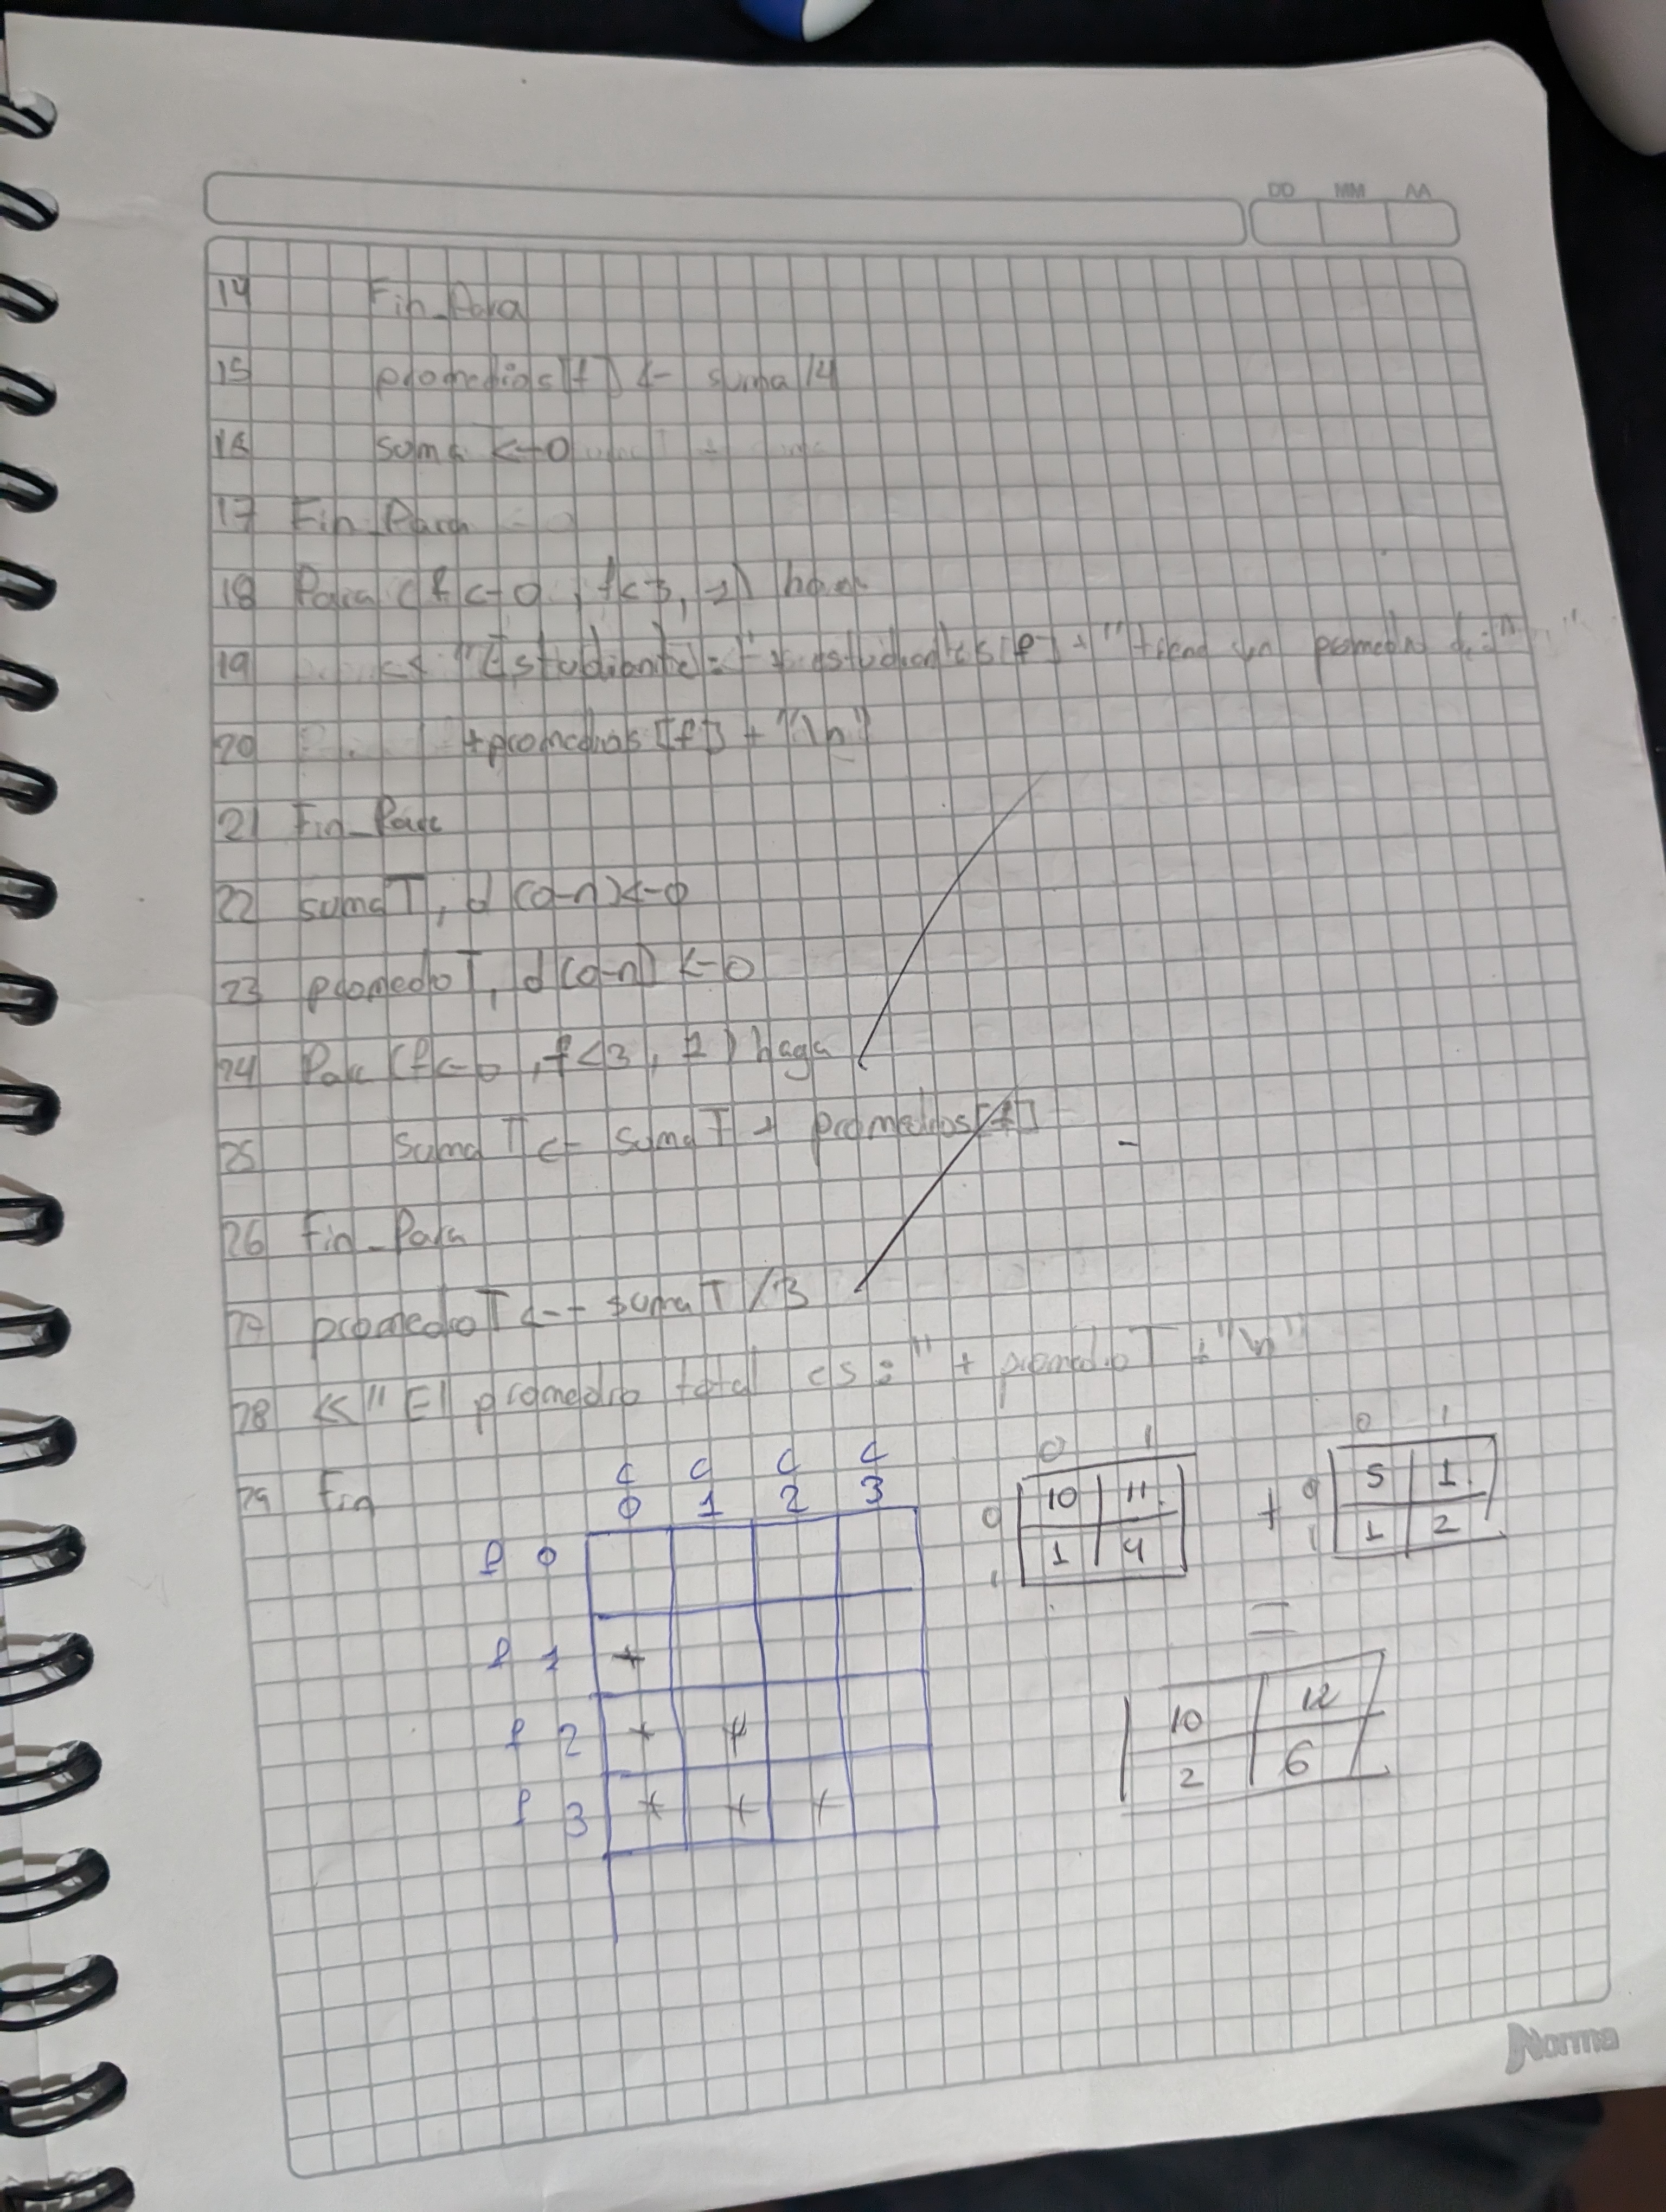 DD MM AA
14 Fin_Para
15 promedios[f] <- suma/4
16 suma <-0
17 Fin_Para
18 Para (f<-0, f<3, 1) haga
19 << "Estudiante:" + estudiantes[f] + "tiene un promedio de:"
20 +promedios[f] + "\n"
21 Fin_Para
22 sumaT, d(0-n)<-0
23 promedoT, d(0-n) <-0
24 Para (f<-0, f<3, 1) haga
25 sumaT <- sumaT + promedios[f]
26 Fin_Para
27 promedioT <- sumaT/3
28 << "El promedio total es:" + promedioT + "\n"
29 Fin
c c c c
0 1 2 3
f 0
f 1 +
f 2 + +
f 3 + + +
0 1
0 10 11
1 1 4
+
0 1
0 5 1
1 1 2
=
10 12
2 6
Norma